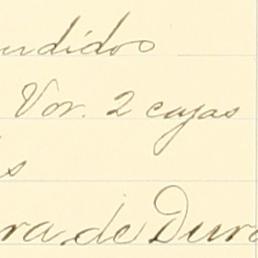 undidos
Vor. 2 cajas
s
ra de Dura